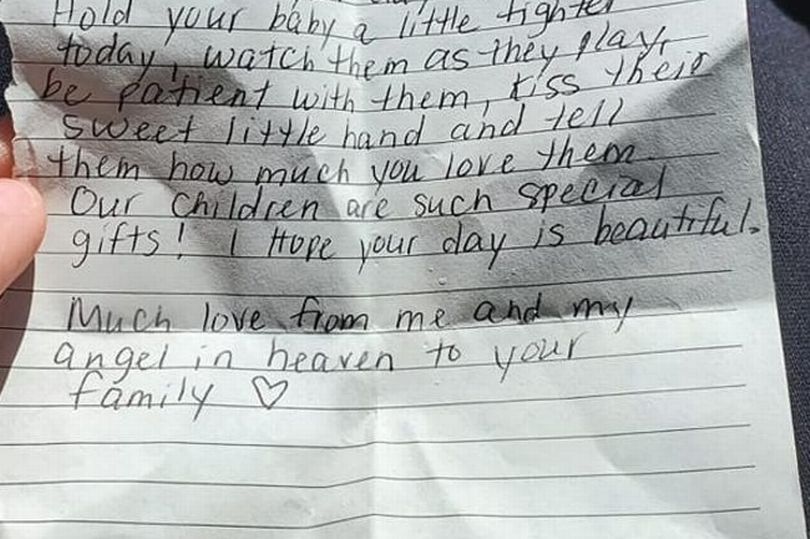 Hold your baby a little tighter
today, watch them as they play,
be patient with them, kiss their
sweet little hand and tell
them how much you love them.
Our children are such special
gifts! I Hope your day is beautiful.
Much love from me and my
angel in heaven to your
family ♡